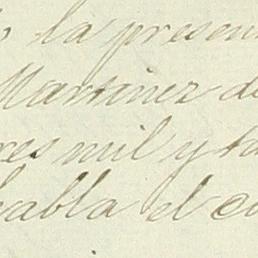 la presen
Martinez de
res mil y ta
habla el cu